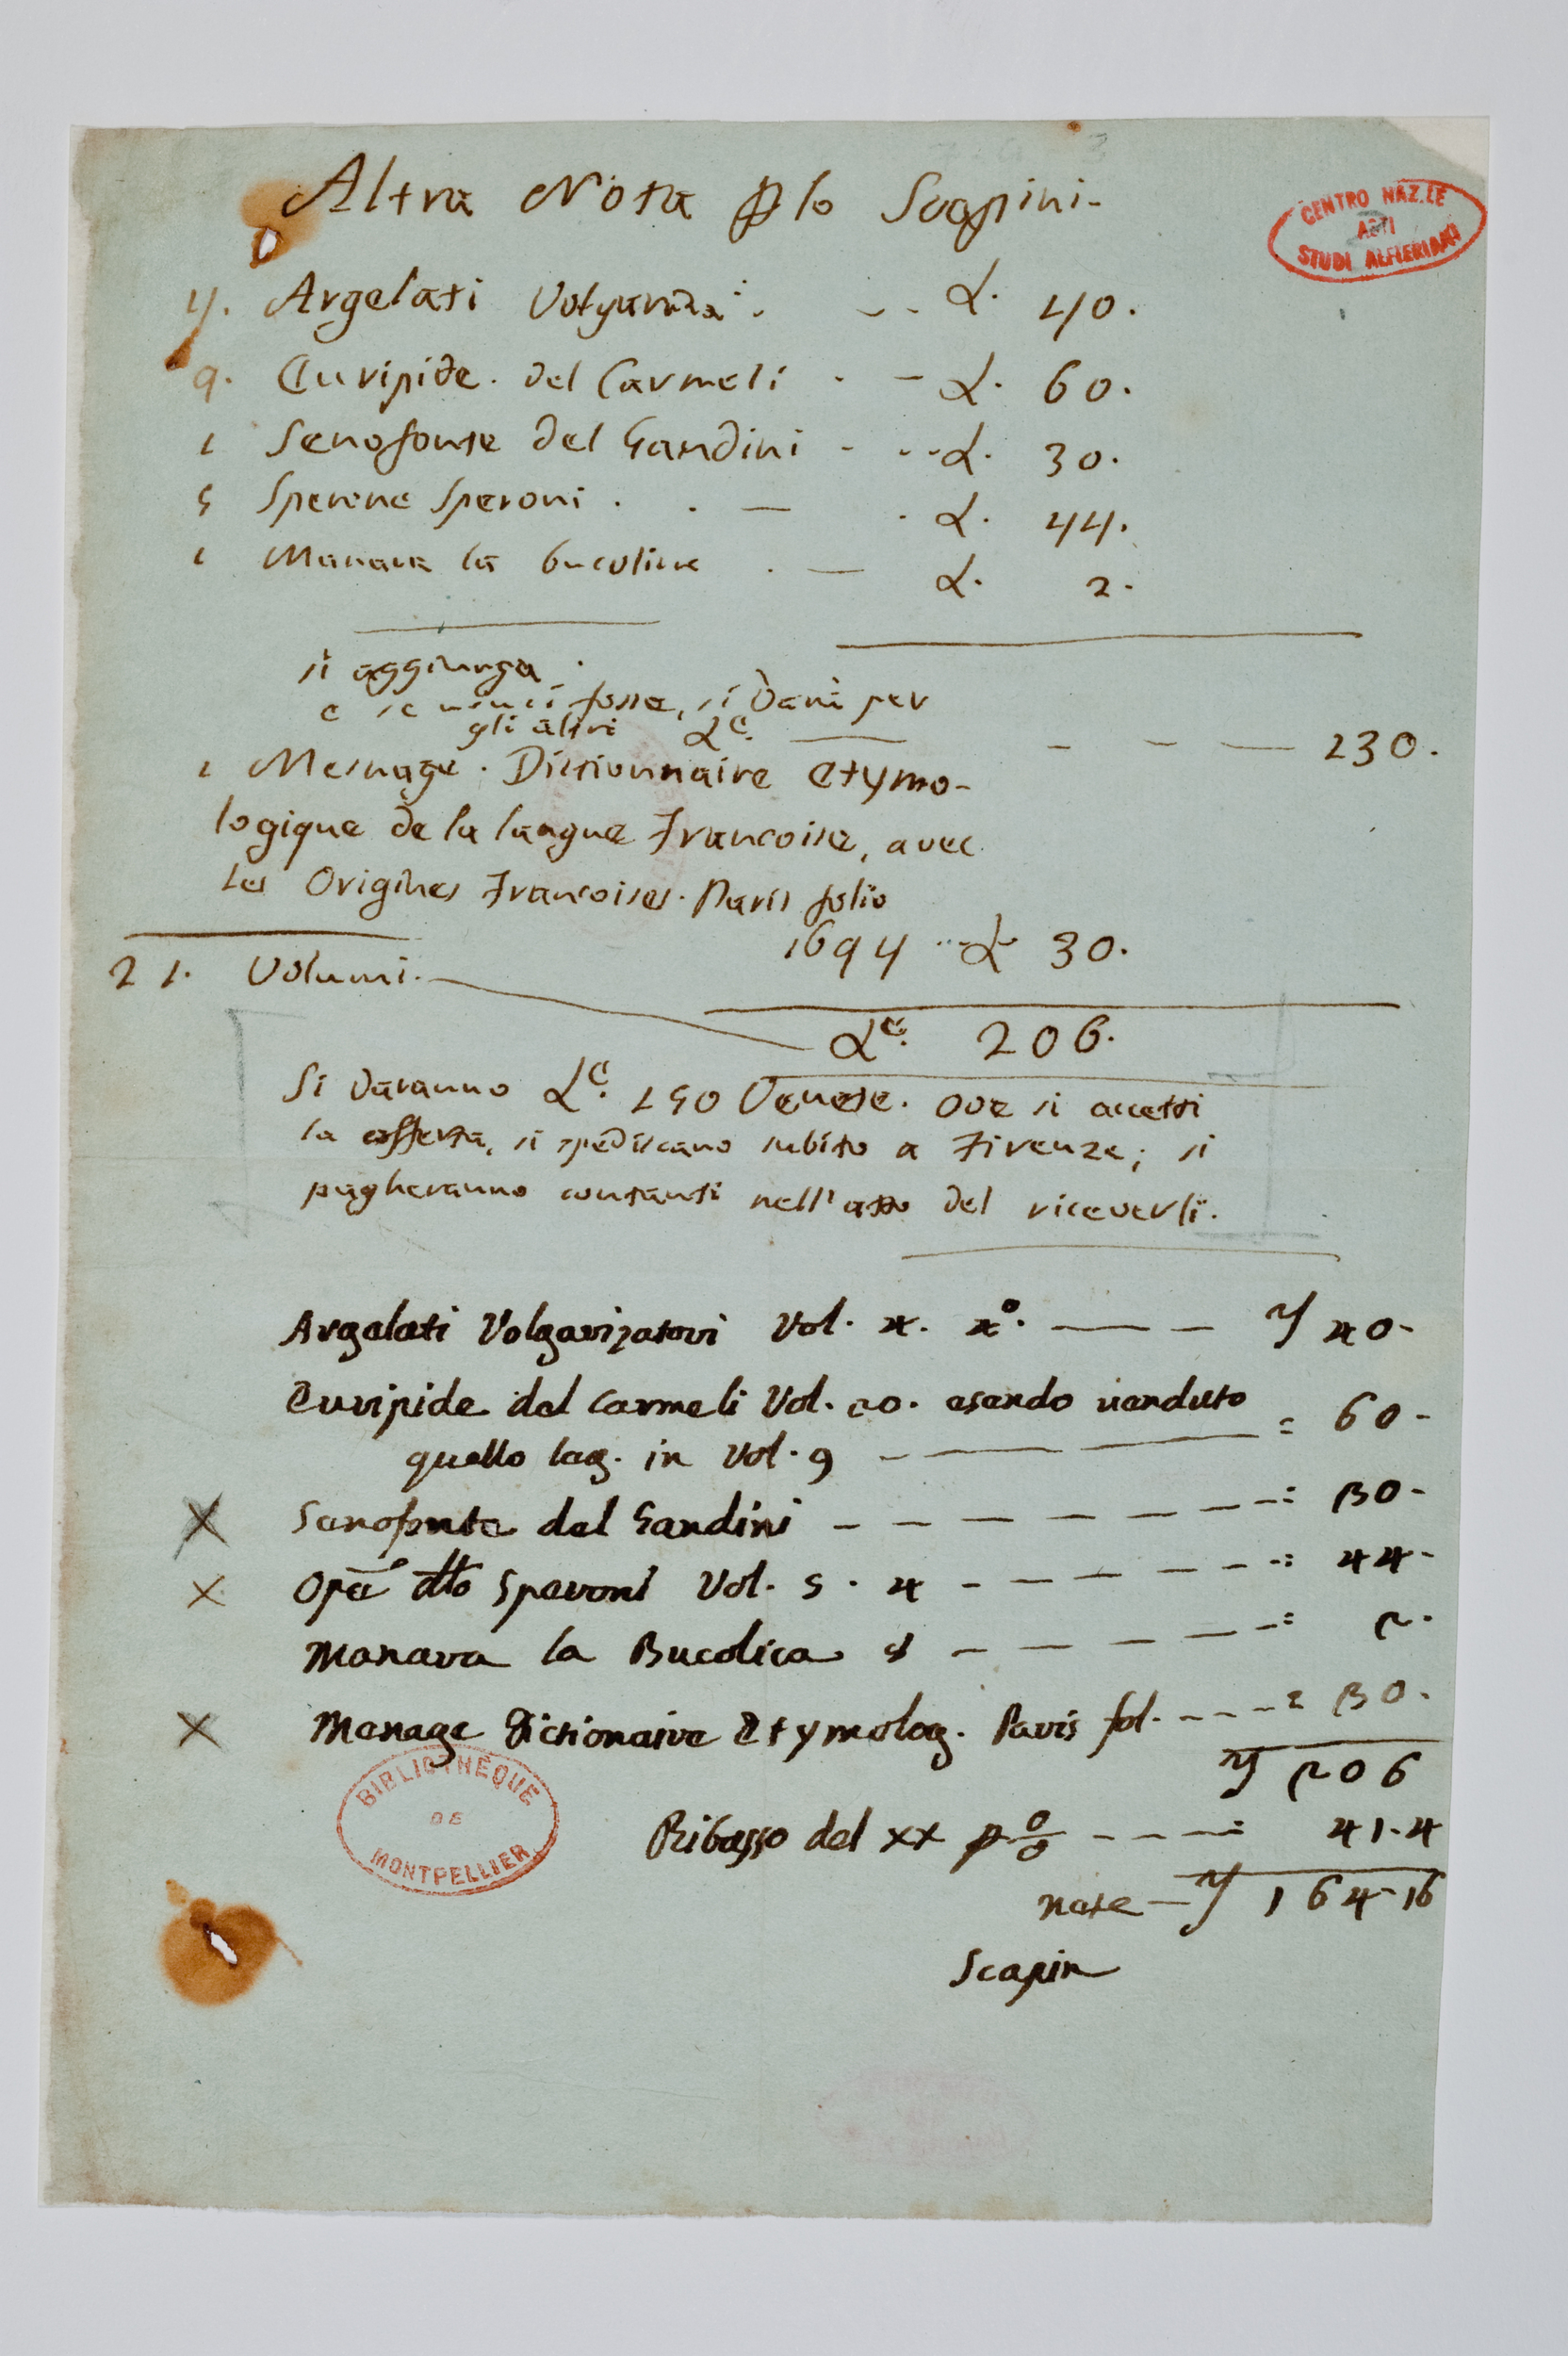 Altra Nota p lo Scapini-
CENTRO NAZ.LE
ASTI
STUDI ALFIERIANI
4. Argelati Volgarizza:. - - L. 40.
9. Euripide. del Carmeli . - L. 60.
1 Senofonte del Gandini - - - L. 30.
5 Sperone Speroni . . — . L. 44.
1 Manara la Bucolica . — L. 2.
si aggiunga.
e se non ci fosse, si Darà per
gli altri Le. — - - — 230.
1 Mesnage. Dictionnaire Etymo-
logique de la langue Francoise, avec
Les Origines Francoises. Paris folio
1694 - L 30.
21. Volumi.
Le. 206.
Si Daranno Le. 150 Venete. Ove si accetti
la offerta, si spediscano subito a Firenze; si
pagheranno contanti nell'atto del riceverli.
Argelati Volgarizatori Vol. 4. 4°. — - 40-
Euripide del Carmeli Vol. 20. esendo venduto
quello leg. in Vol. 9 - — — = 60-
X Senofonte del Gandini - - - - - - = 30-
X Ope dtto Speroni Vol. 5. 4 - - - - - - = 44-
Manara la Bucolica - - - - - = 2.
X Menage Dictionaire Etymolog. Paris fol. - - - - = 30.
206
BIBLIOTHÈQUE
DE
MONTPELLIER
Ribasso del xx p % - - - = 41.4
nete — 164-16
Scapin